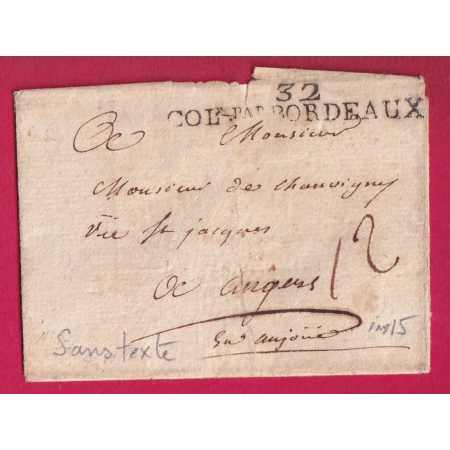 32
COL. PAR BORDEAUX
A Monsieur
Monsieur de chauvigny
rüe st jacques
A angers 12
en anjoüe
Sans texte